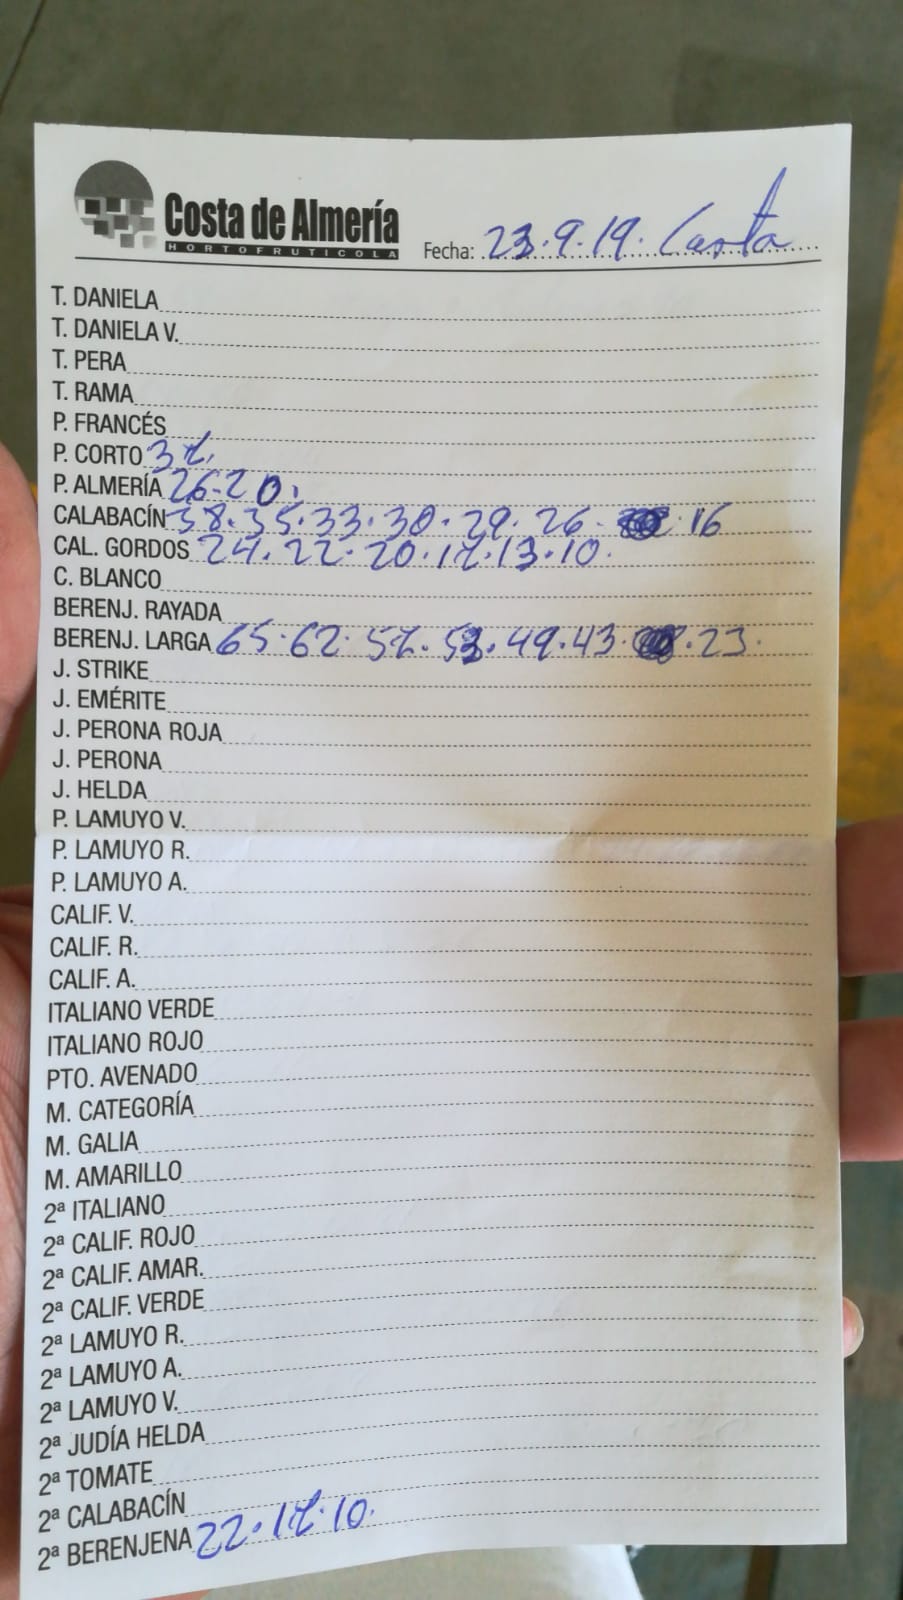 Costa de Almería
HORTOFRUTICOLA
Fecha: 23.9.19. Costa
T. DANIELA
T. DANIELA V.
T. PERA
T. RAMA
P. FRANCÉS
P. CORTO 37.
P. ALMERÍA 26-20.
CALABACÍN 38.35.33.30.29.26. 16
CAL. GORDOS 24.22.20.17.13.10.
C. BLANCO
BERENJ. RAYADA
BERENJ. LARGA 65.62.57.53.49.43. .23.
J. STRIKE
J. EMÉRITE
J. PERONA ROJA
J. PERONA
J. HELDA
P. LAMUYO V.
P. LAMUYO R.
P. LAMUYO A.
CALIF. V.
CALIF. R.
CALIF. A.
ITALIANO VERDE
ITALIANO ROJO
PTO. AVENADO
M. CATEGORÍA
M. GALIA
M. AMARILLO
2ª ITALIANO
2ª CALIF. ROJO
2ª CALIF. AMAR.
2ª CALIF. VERDE
2ª LAMUYO R.
2ª LAMUYO A.
2ª LAMUYO V.
2ª JUDÍA HELDA
2ª TOMATE
2ª CALABACÍN
2ª BERENJENA 22.17.10.